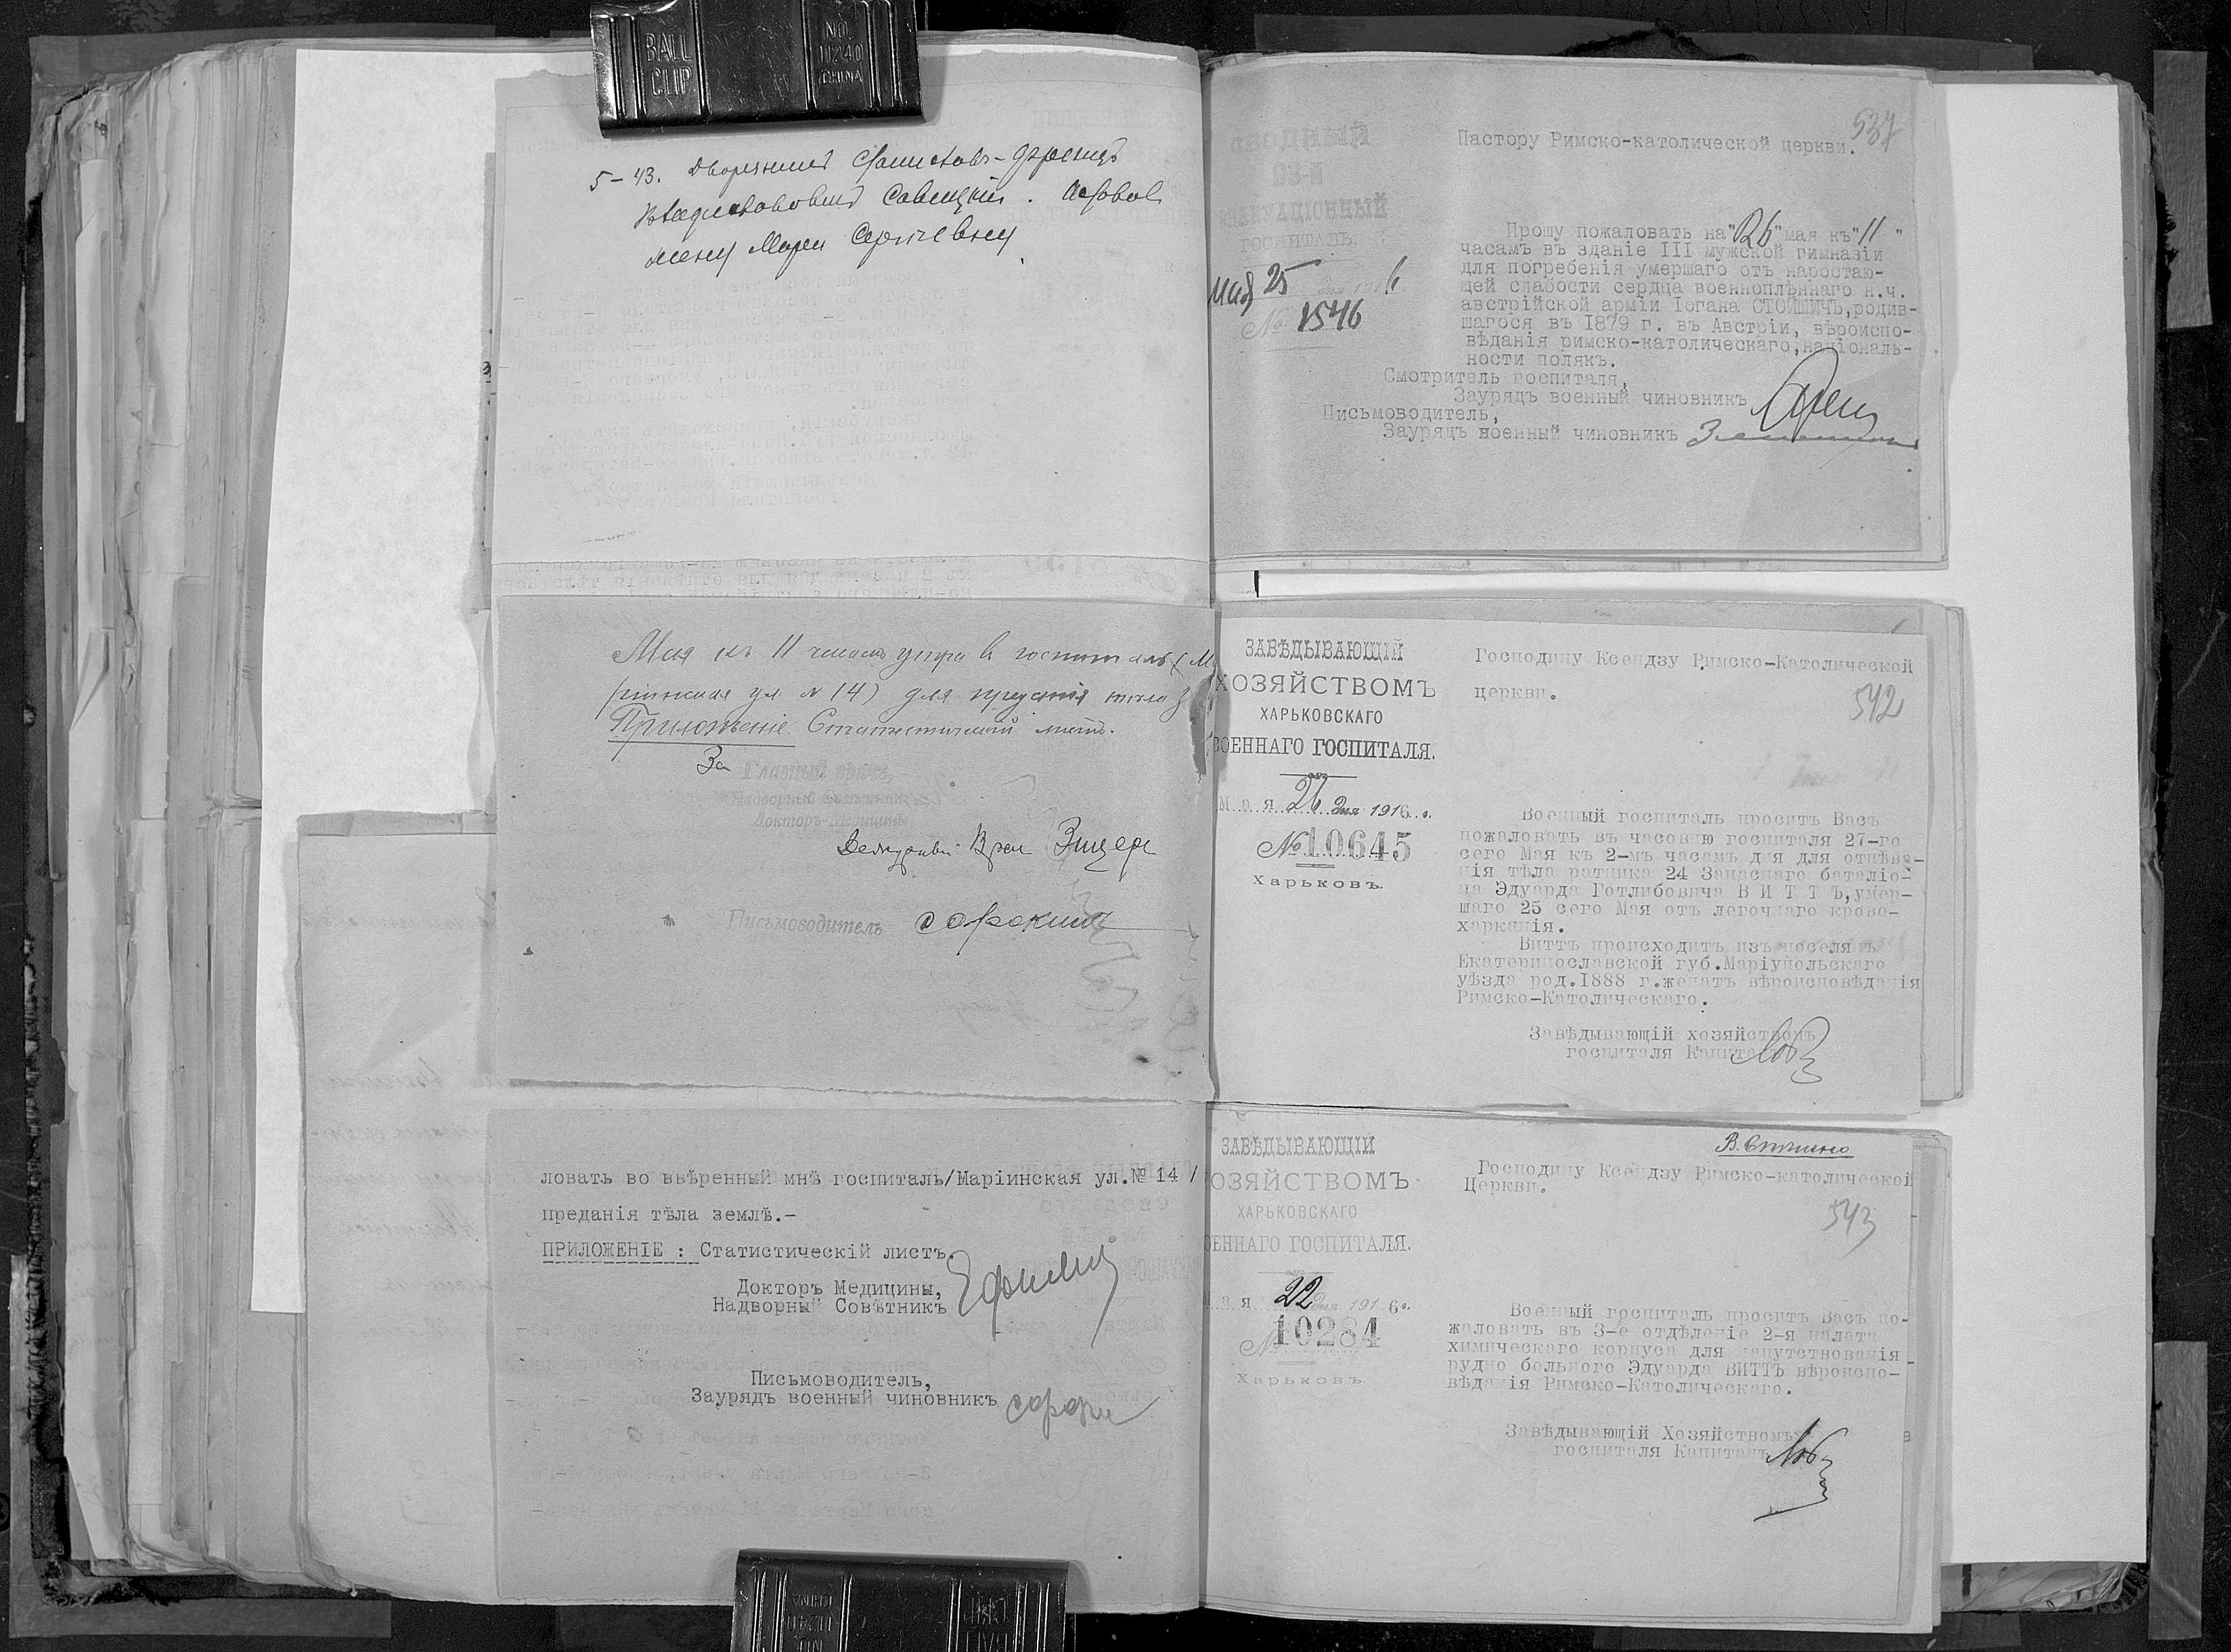 BALL
CLIP
NO.
10240
CHINA
5-43. Дворянинъ
Савицкій.
жену Сергѣевну
Мая къ 11 часамъ утра въ госпиталь
ул № 14) для преданія тѣла
Приложеніе. Статистическій листъ.
За Главный врачъ,
Надворный Совѣтникъ
Докторъ-Медицины
Дежурный Врач
Письмоводитель Сорокинъ
ловать во ввѣренный мнѣ госпиталь/Маріинская ул.№ 14 /
преданія тѣла землѣ.-
ПРИЛОЖЕНІЕ : Статистическій листъ.
Докторъ Медицины,
Надворный Совѣтникъ
Письмоводитель,
Заурядъ военный чиновникъ
СВОДНЫЙ
ЭВАКУАЦІОННЫЙ
ГОСПИТАЛЬ.
Мая 25 дня 1916
№ 1546
537
Пастору Римско-католической церкви.
Прошу пожаловать на"26"мая къ"11 "
часамъ въ зданіе III мужской гимназіи
для погребенія умершаго отъ наростаю-
щей слабости сердца военноплѣннаго н.ч.
австрійской арміи Іогана СТОЙШИЧЪ,родив-
шагося въ 1879 г. въ Австріи, вѣроиспо-
вѣданія римско-католическаго,націоналъ-
ности полякъ.
Смотритель госпиталя,
Заурядъ военный чиновникъ
Письмоводитель,
Заурядъ военный чиновникъ
ЗАВѢДЫВАЮЩІЙ
ХОЗЯЙСТВОМЪ
ХАРЬКОВСКАГО
ВОЕННАГО ГОСПИТАЛЯ.
Мая 26 дня 1916 г.
№ 10645
Харьковъ.
Господину Ксендзу Римско-Католической
церкви.
542
Военный госпиталь проситъ Васъ
пожаловать въ часовню госпиталя 27-го
сего Мая къ 2-мъ часамъ дня для отпѣва-
нія тѣла ратника 24 Запаснаго баталіо-
на Эдуарда Готлибовича ВИТТЪ,умер-
шаго 25 сего Мая отъ легочнаго крово-
харканія.
Виттъ происходитъ изъ поселянъ
Екатеринославской губ.Маріупольскаго
уѣзда род.1888 г.женатъ вѣроисповѣданія
Римско-Католическаго.
Завѣдывающій хозяйствомъ
госпиталя Капитанъ
ЗАВѢДЫВАЮЩІЙ
ХОЗЯЙСТВОМЪ
ХАРЬКОВСКАГО
ВОЕННАГО ГОСПИТАЛЯ.
Мая 22 дня 1916 г.
№ 10284
Харьковъ.
Господину Ксендзу Римско-католической
Церкви.
543
Военный госпиталь проситъ Васъ по-
жаловать въ 3-е отдѣленіе 2-я палата
химическаго корпуса для напутствованія
рудно больного Эдуарда ВИТТЪ вѣроиспо-
вѣданія Римско-Католическаго.
Завѣдывающій Хозяйствомъ
госпиталя Капитанъ